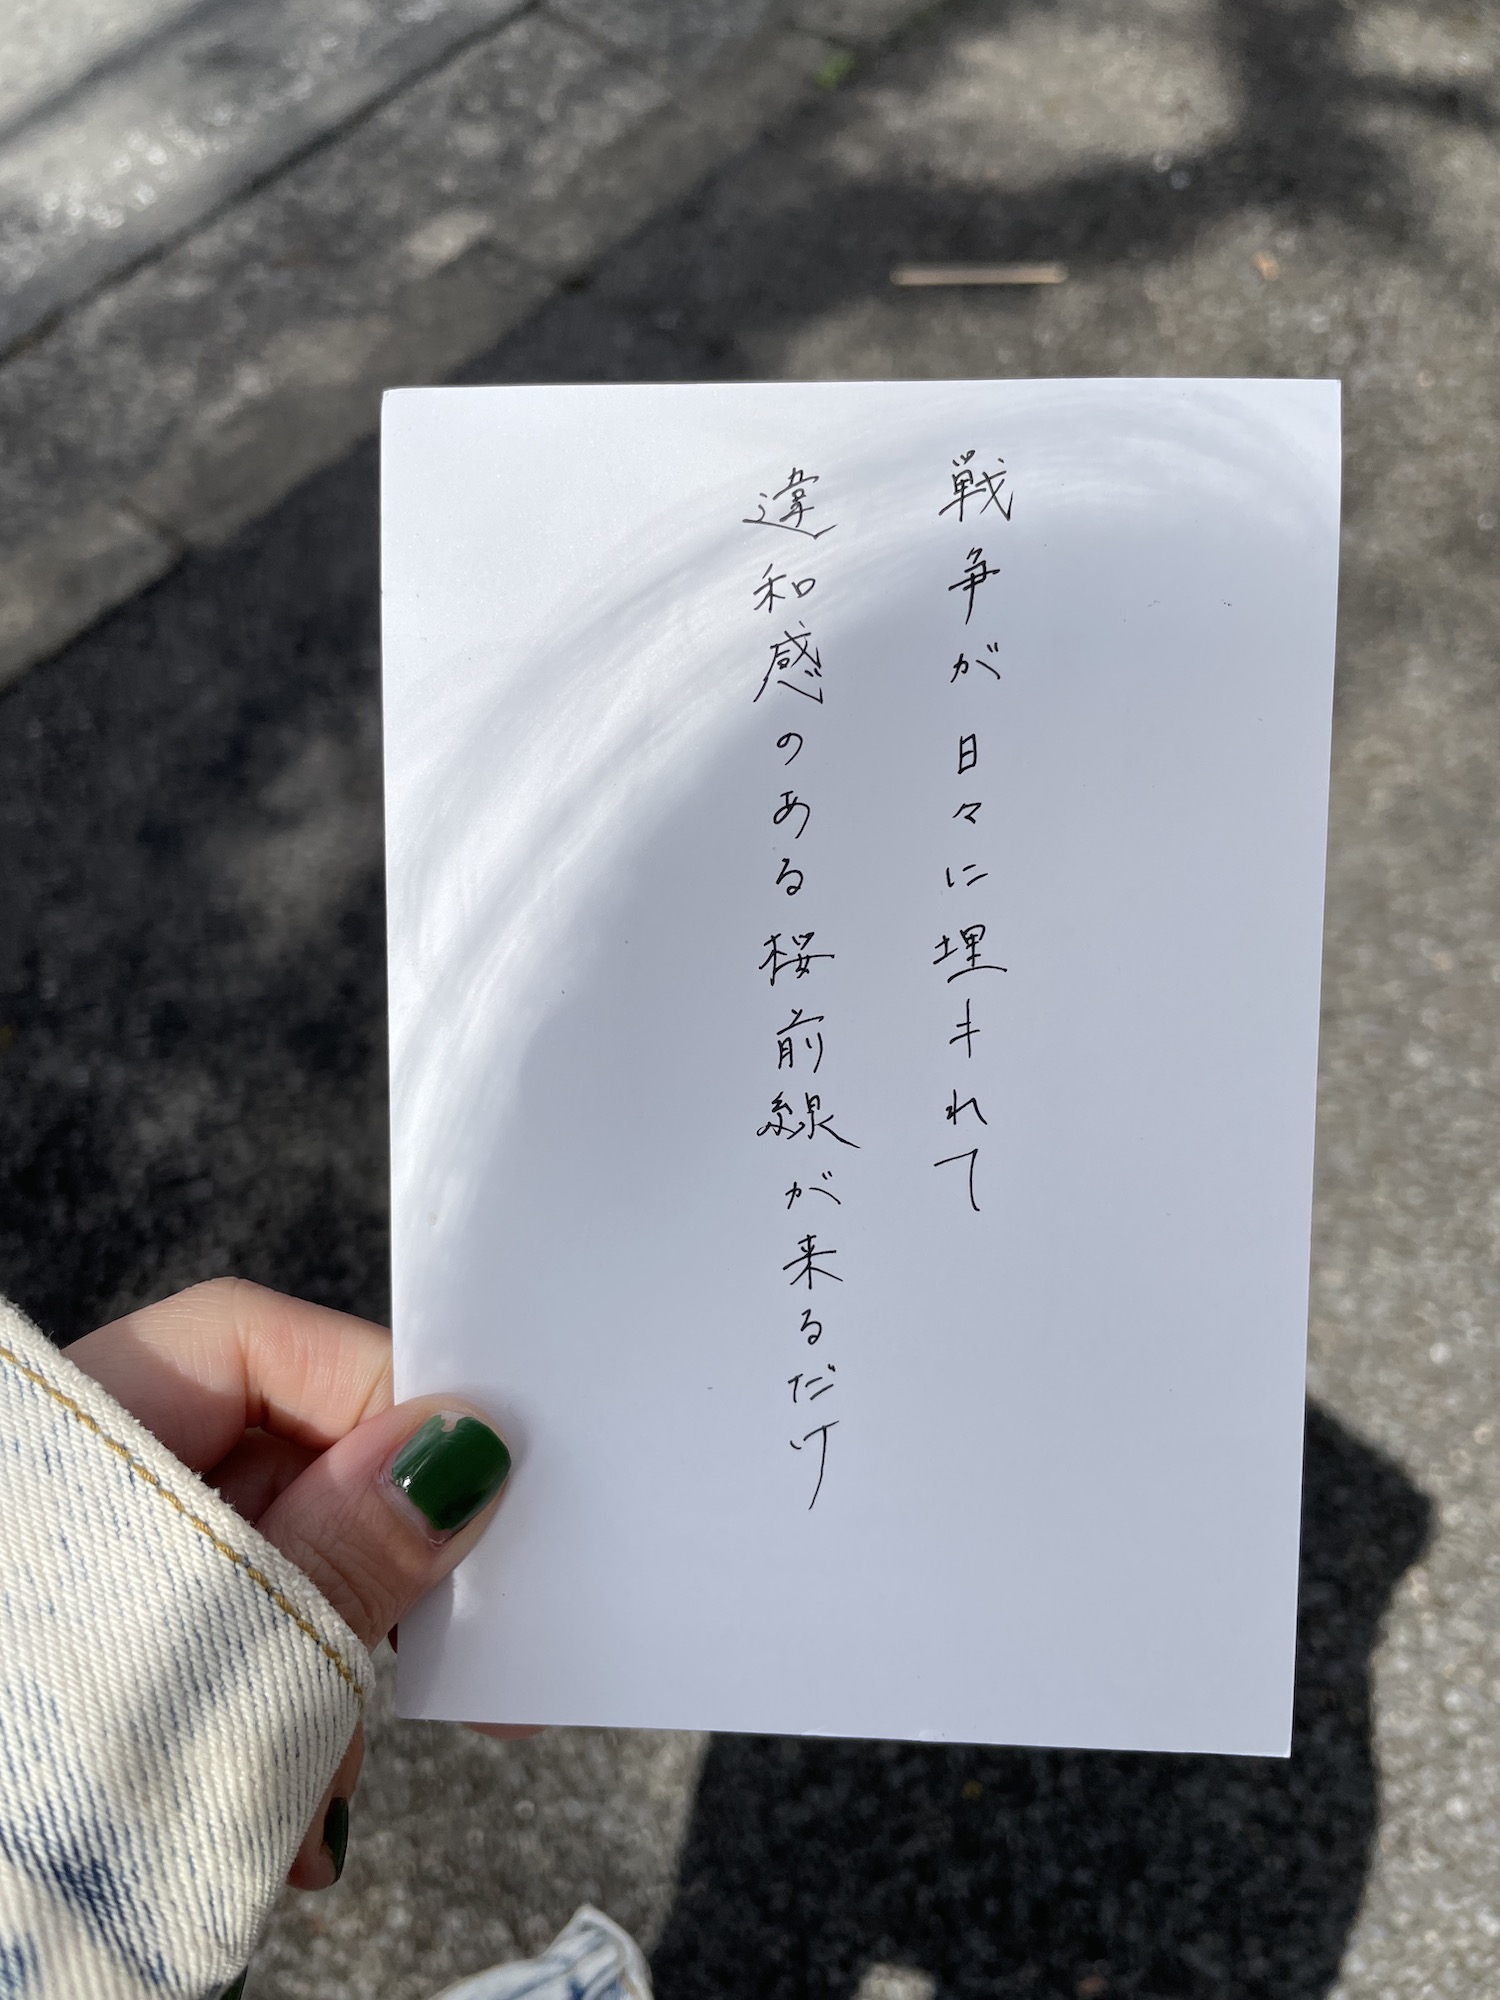 戦争が日々に埋もれて
違和感のある桜前線が来るだけ